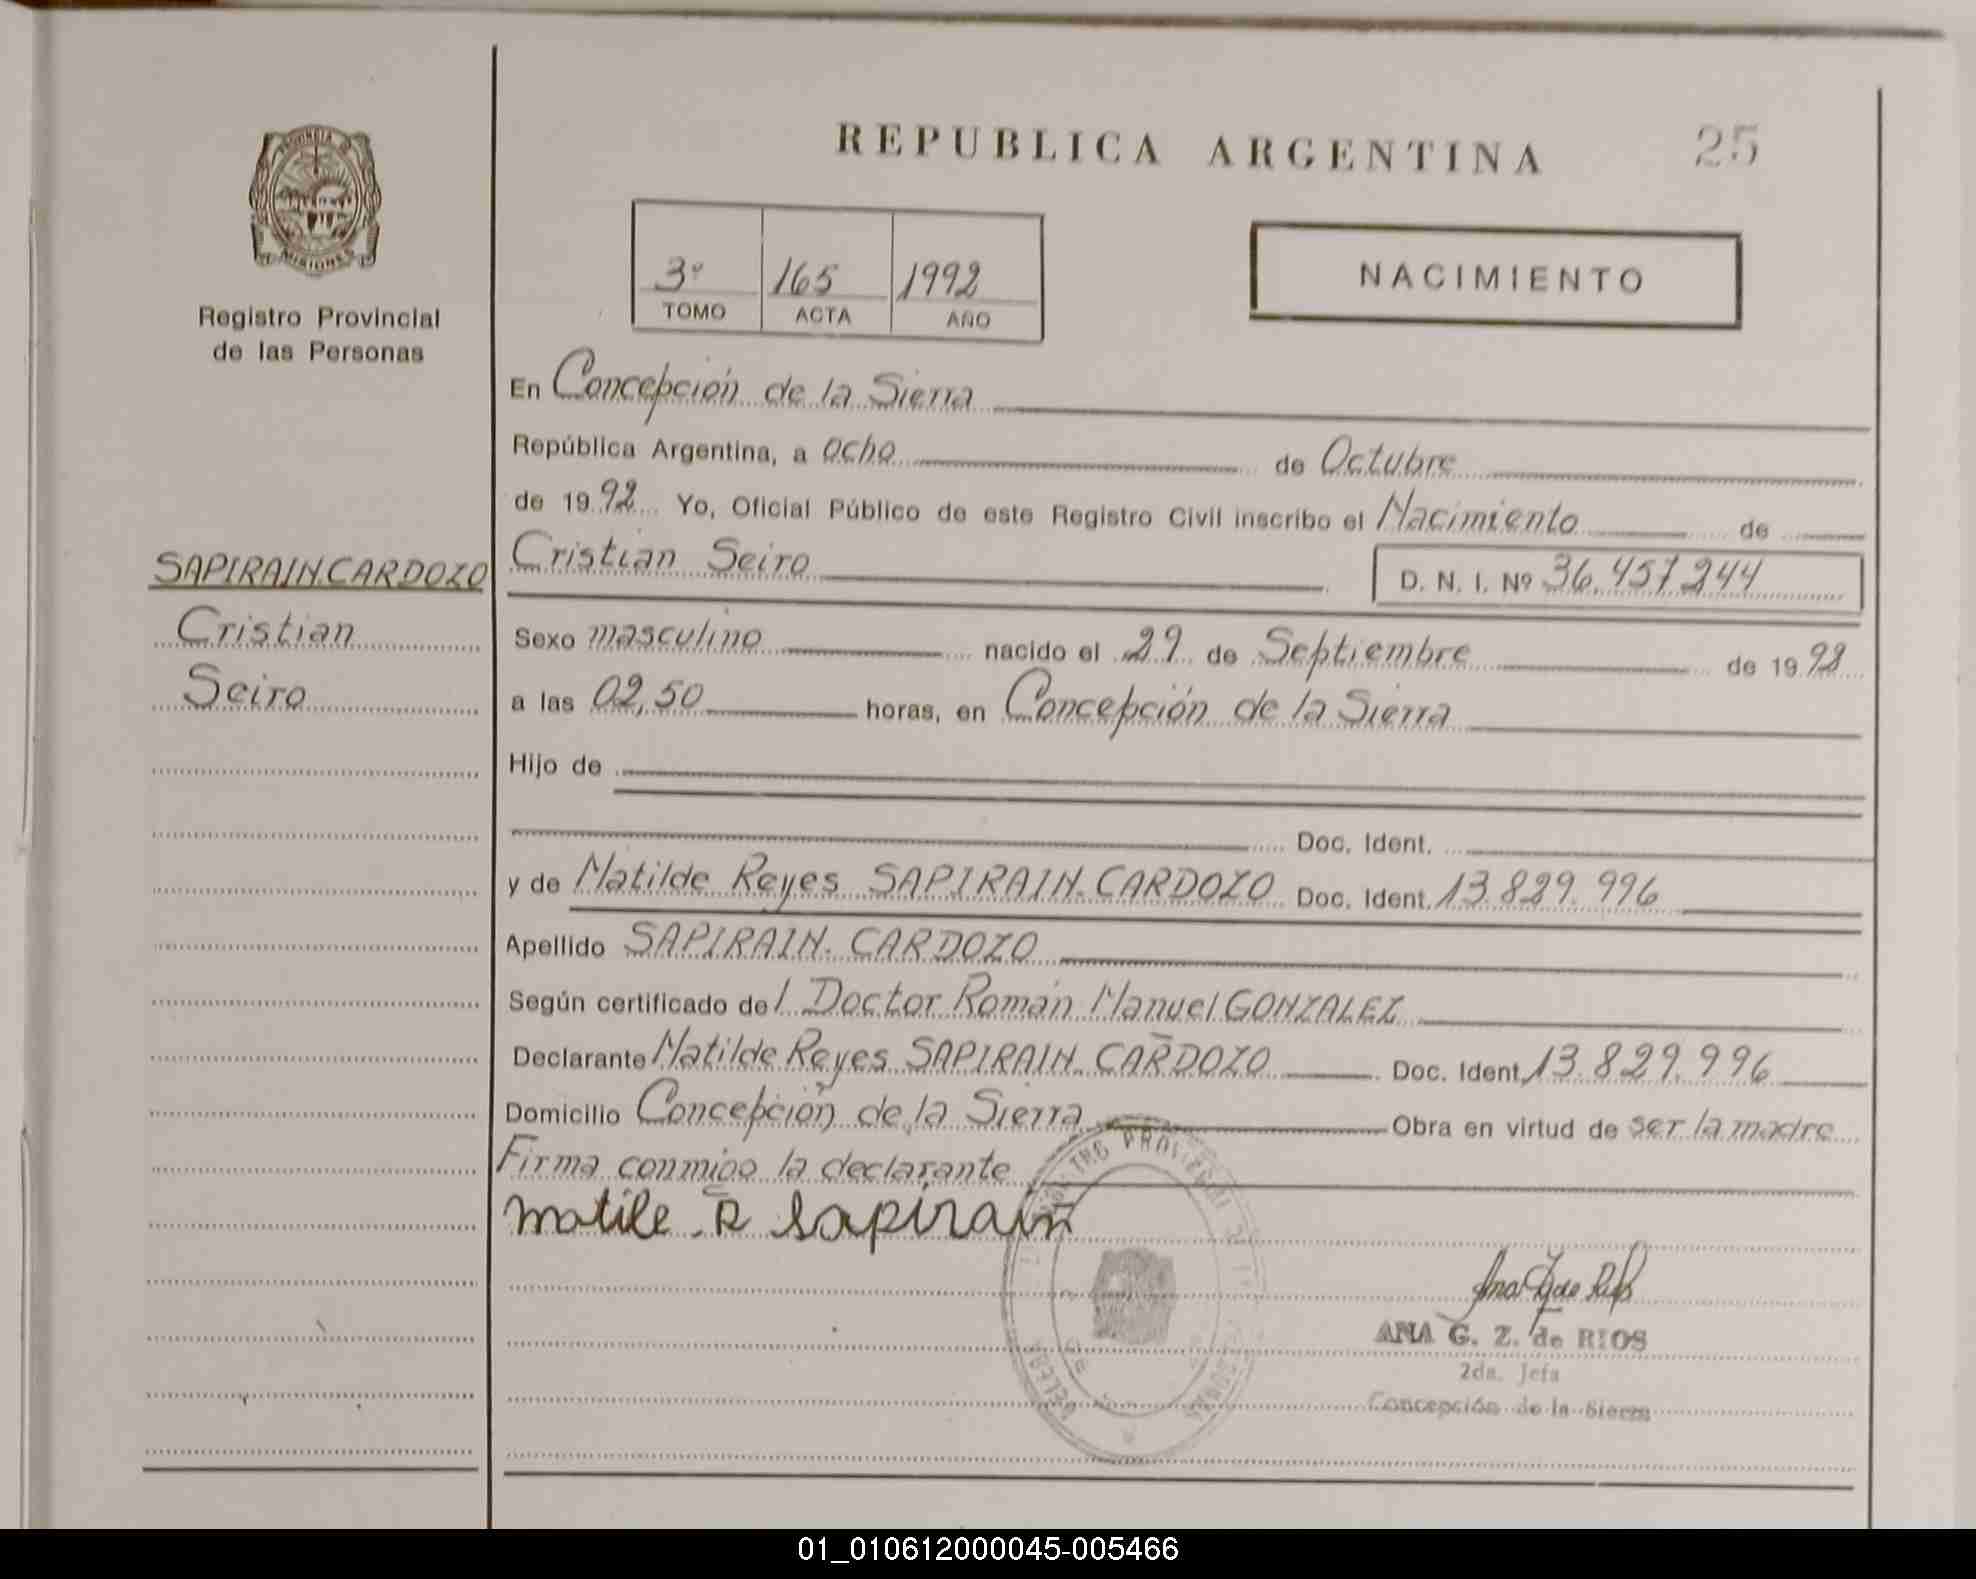 REPUBLICA ARGENTINA 25
PROVINCIA DE
MISIONES
Registro Provincial
de las Personas
3º 165 1992
TOMO ACTA AÑO
NACIMIENTO
En Concepción de la Sierra
República Argentina, a ocho de Octubre
de 1992 Yo, Oficial Público de este Registro Civil inscribo el Nacimiento de
SAPIRAIN CARDOZO
Cristian
Seiro
Cristian Seiro D. N. I. Nº 36.457.244
Sexo masculino nacido el 29 de Septiembre de 1992
a las 02,50 horas, en Concepción de la Sierra
Hijo de
Doc. Ident.
y de Matilde Reyes SAPIRAIN CARDOZO Doc. Ident. 13.829.996
Apellido SAPIRAIN CARDOZO
Según certificado del Doctor Román Manuel GONZALEZ
Declarante Matilde Reyes SAPIRAIN CARDOZO Doc. Ident. 13.829.996
Domicilio Concepción de la Sierra Obra en virtud de ser la madre
Firma conmigo la declarante
matile R sapirain
ANA G. Z. de RIOS
2da. Jefa
Concepción de la Sierra
01_010612000045-005466